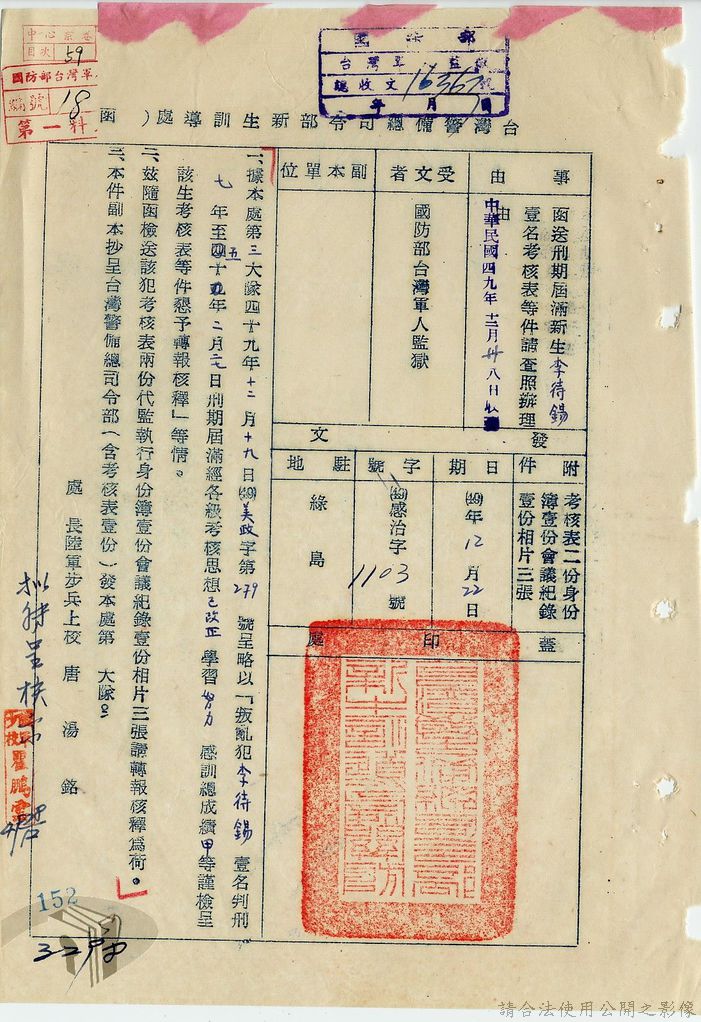 中心案卷
目次 59
國防部台灣軍
編號 18
第一科
國防部
台灣軍 監獄
總收文 16367 號
年 月 日
台灣警備總司令部新生訓導處( 函 )
事由
函送刑期屆滿新生李待錫
壹名考核表等件請查照辦理
由
中華民國四九年十二月廿八日收
受文者
國防部台灣軍人監獄
副本單位
發文
附件
考核表二份身份
簿壹份會議紀錄
壹份相片三張
日期
(49)年12月22日
字號
(49)感治字
1103 號
駐地
綠島
蓋印處
一、據本處第三大隊四十九年十二月十九日(49)美政字第 279 號呈略以「叛亂犯李待錫壹名判刑
七年至五十年二月 日刑期屆滿經各級考核思想已改正學習努力感訓總成績甲等謹檢呈
該生考核表等件懇予轉報核釋」等情。
二、茲隨函檢送該犯考核表兩份代監執行身份簿壹份會議紀錄壹份相片三張請轉報核釋為荷。
三、本件副本抄呈台灣警備總司令部(含考核表壹份)發本處第 大隊。
處長陸軍步兵上校 唐湯銘
152
請合法使用公開之影像